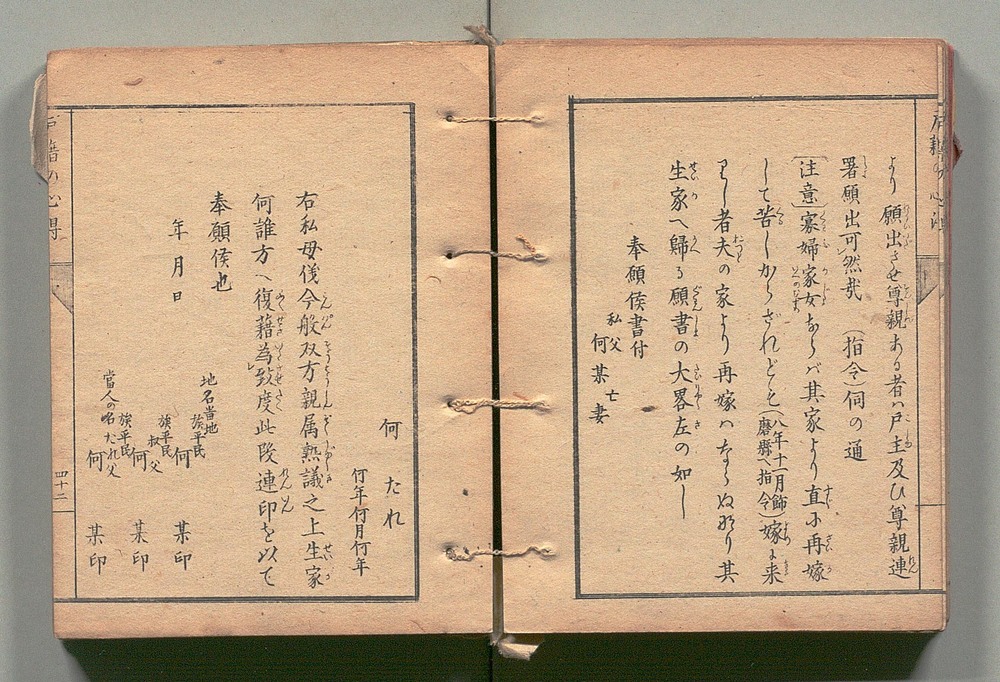 より願出させ尊親ある者ハ戸主及ひ尊親連
署願出可然哉 (指令)伺の通
〔注意〕寡婦家女ならバ其家より直に再嫁
して苦しからざれども(八年十一月餝磨縣指令)嫁に来
りし者夫の家より再嫁ハならぬなり其
生家へ歸る願書の大畧左の如し
奉願候書付
私父
何某亡妻
何たれ
何年何月何年
右私母儀今般双方親属熟議之上生家
何誰方へ復籍為致度此段連印を以て
奉願候也
年月日
地名當地
族平民
何 某印
族平民
叔父
何 某印
族平民
當人の名たれ父
何 某印
戸籍の心得
四十二